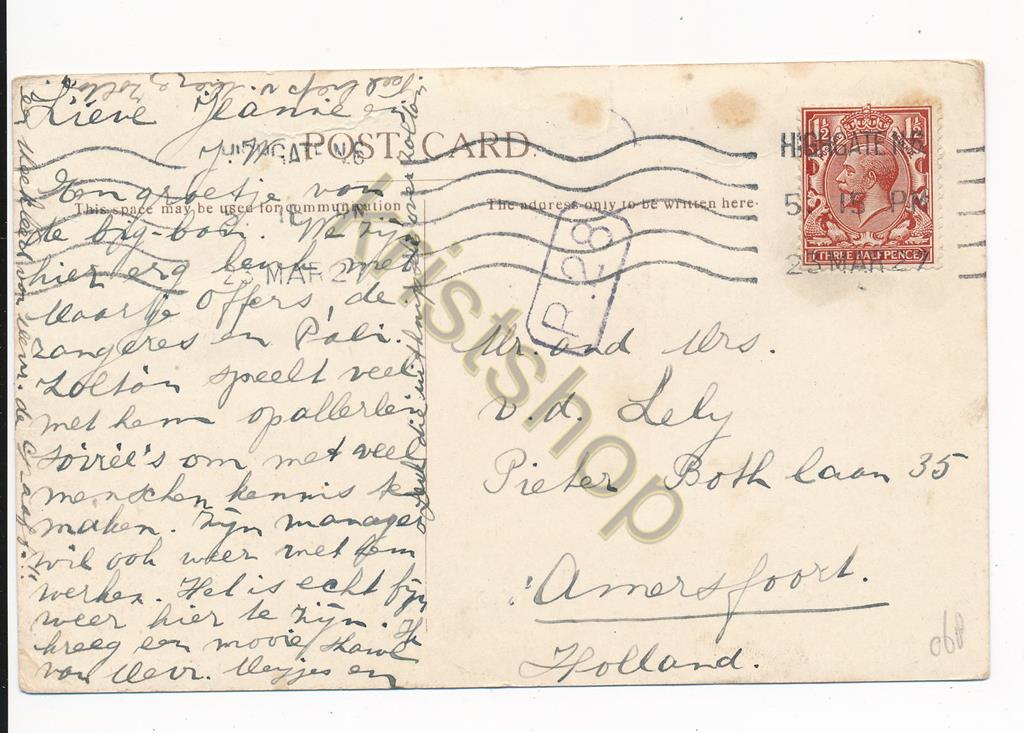 Lieve Jeanne en
POST CARD.
HIGHGATE N.6
Een groetje van
This space may be used for communication
The address only to be written here.
de big-ben. We zijn
hier erg leuk met
23 MAR 27
Maartje Offers, de
zangeres en Pali.
Zoltán speelt veel
met hem op allerlei
soirée's om met veel
menschen kennis te
maken. Zijn manager
wil ook weer met hem
werken. Het is echt fijn
weer hier te zijn. Ik
kreeg een mooie shawl
van Mevr. Meyjes en
HIGHGATE N.6
5 15 PM
23 MAR 27
THREE HALF PENCE
P.28
Mr. and Mrs.
v.d. Lely
Pieter Both laan 35
Amersfoort.
Holland.
068
Kristshop